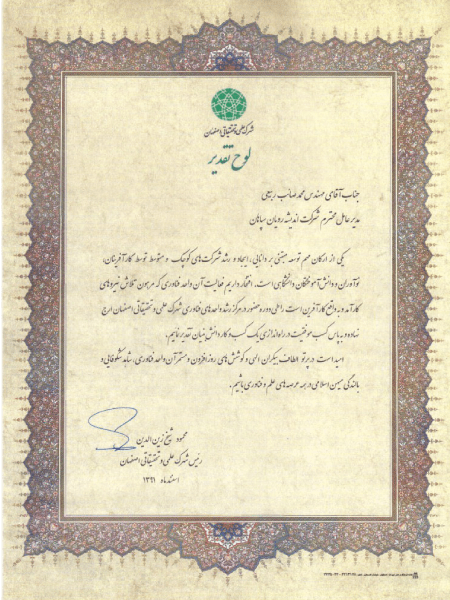 شهرک علمی و تحقیقاتی اصفهان
لوح تقدیر
جناب آقای مهندس محمد صائب ربیعی
مدیر عامل محترم شرکت اندیشه رویان سپاهان
یکی از ارکان مهم توسعه مبتنی بر دانایی، ایجاد و رشد شرکت‌های کوچک و متوسط توسط کارآفرینان،
نوآوران و دانش آموختگان دانشگاهی است. افتخار داریم فعالیت آن واحد فناوری که مرهون تلاش نیروهای
کارآمد و به واقع کارآفرین است را طی دوره حضور در مرکز رشد واحدهای فناوری شهرک علمی و تحقیقاتی اصفهان ارج
نهاده و به پاس کسب موفقیت در راه‌اندازی یک کسب و کار دانش بنیان تقدیر نمائیم.
امید است در پرتو الطاف بیکران الهی و کوشش‌های روزافزون و مستمر آن واحد فناوری، شاهد شکوفایی و
بالندگی میهن اسلامی در همه عرصه‌های علم و فناوری باشیم.
محمود شیخ زین الدین
رئیس شهرک علمی و تحقیقاتی اصفهان
اسفند ماه ۱۳۹۱